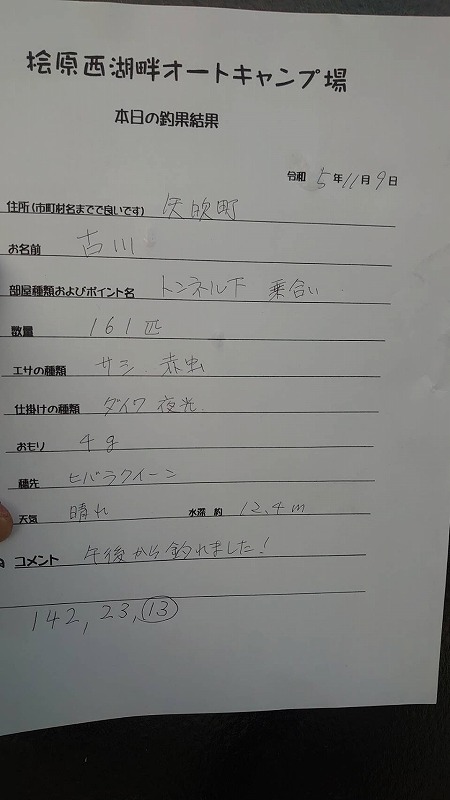 桧原西湖畔オートキャンプ場
本日の釣果結果
令和 5年11月9日
住所(市町村名までで良いです) 矢吹町
お名前 古川
部屋種類およびポイント名 トンネル下 乗合い
数量 161匹
エサの種類 サシ、赤虫
仕掛けの種類 ダイワ 夜光
おもり 4g
穂先 ヒバラクイーン
天気 晴れ 水深 約 12.4m
コメント 午後から釣れました!
142, 23, 13